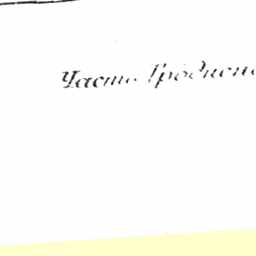 Часть Гродненс